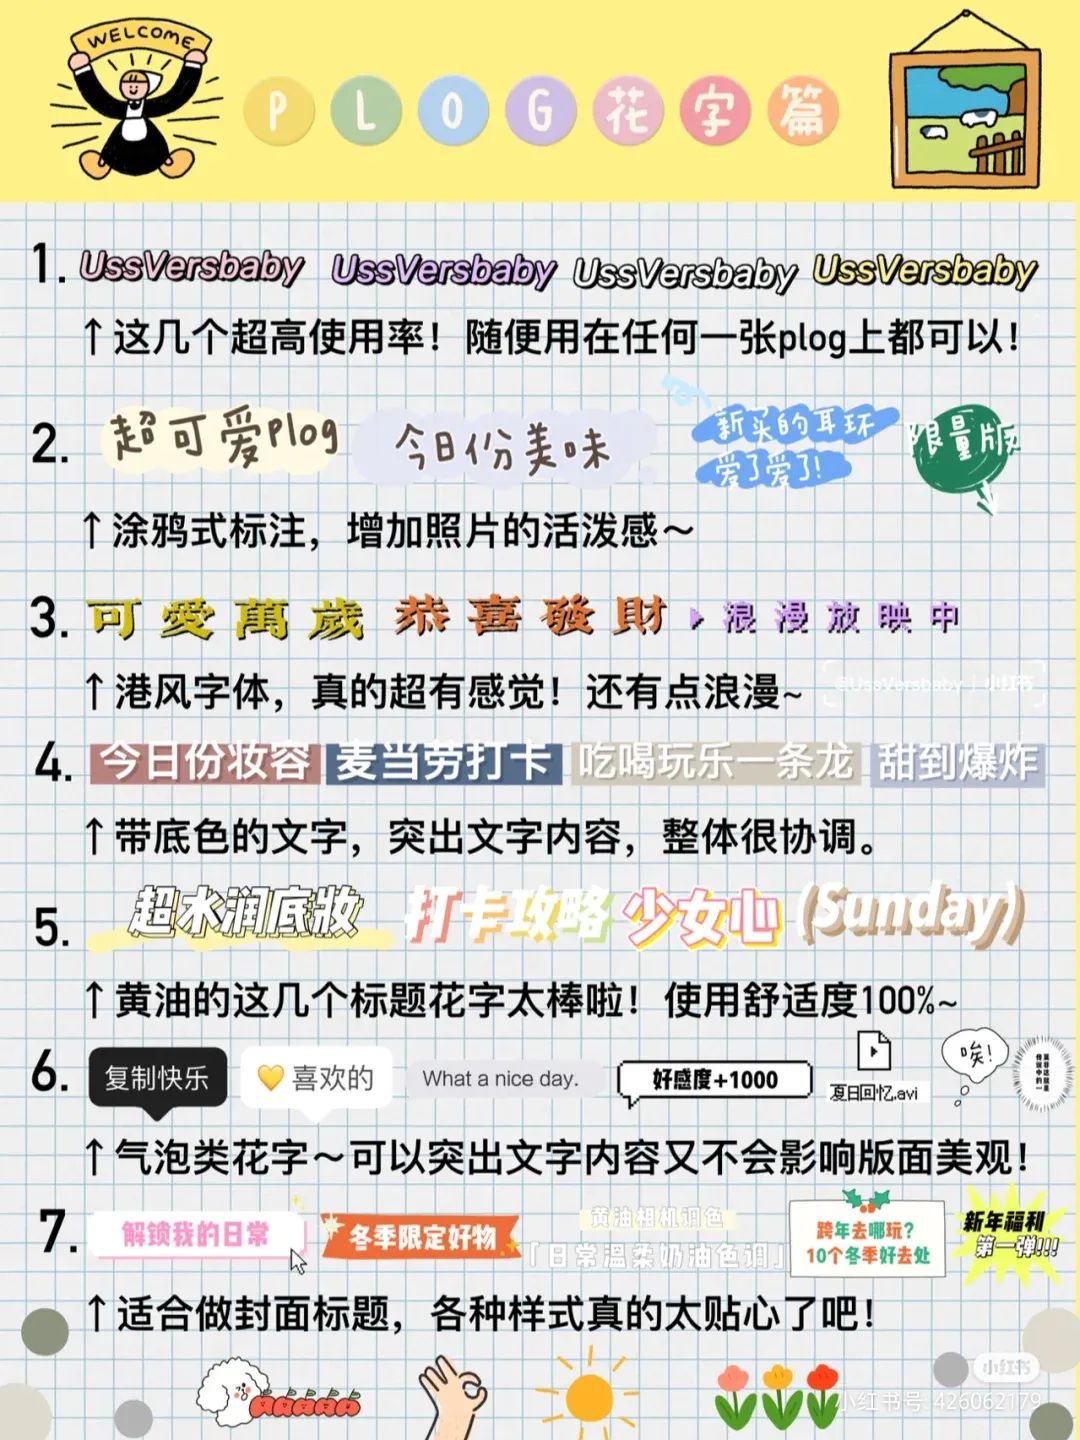 WELCOME
PLOG花字篇
1. UssVersbaby UssVersbaby UssVersbaby UssVersbaby
↑这几个超高使用率！随便用在任何一张plog上都可以！
2. 超可爱Plog 今日份美味 新买的耳环 限量版
爱了爱了！
↑涂鸦式标注，增加照片的活泼感～
3. 可愛萬歲 恭喜發財 浪漫放映中
↑港风字体，真的超有感觉！还有点浪漫~
@UssVersbaby | 小红书
4. 今日份妆容 麦当劳打卡 吃喝玩乐一条龙 甜到爆炸
↑带底色的文字，突出文字内容，整体很协调。
5. 超水润底妆 打卡攻略 少女心 (Sunday)
↑黄油的这几个标题花字太棒啦！使用舒适度100%~
6. 复制快乐 💛喜欢的 What a nice day. 好感度+1000 夏日回忆.avi 唉！
↑气泡类花字～可以突出文字内容又不会影响版面美观！
7. 解锁我的日常 冬季限定好物
黄油相机调色
「日常温柔奶油色调」
跨年去哪玩？
10个冬季好去处
新年福利
第一弹!!!
↑适合做封面标题，各种样式真的太贴心了吧！
小红书
小红书号:426062179